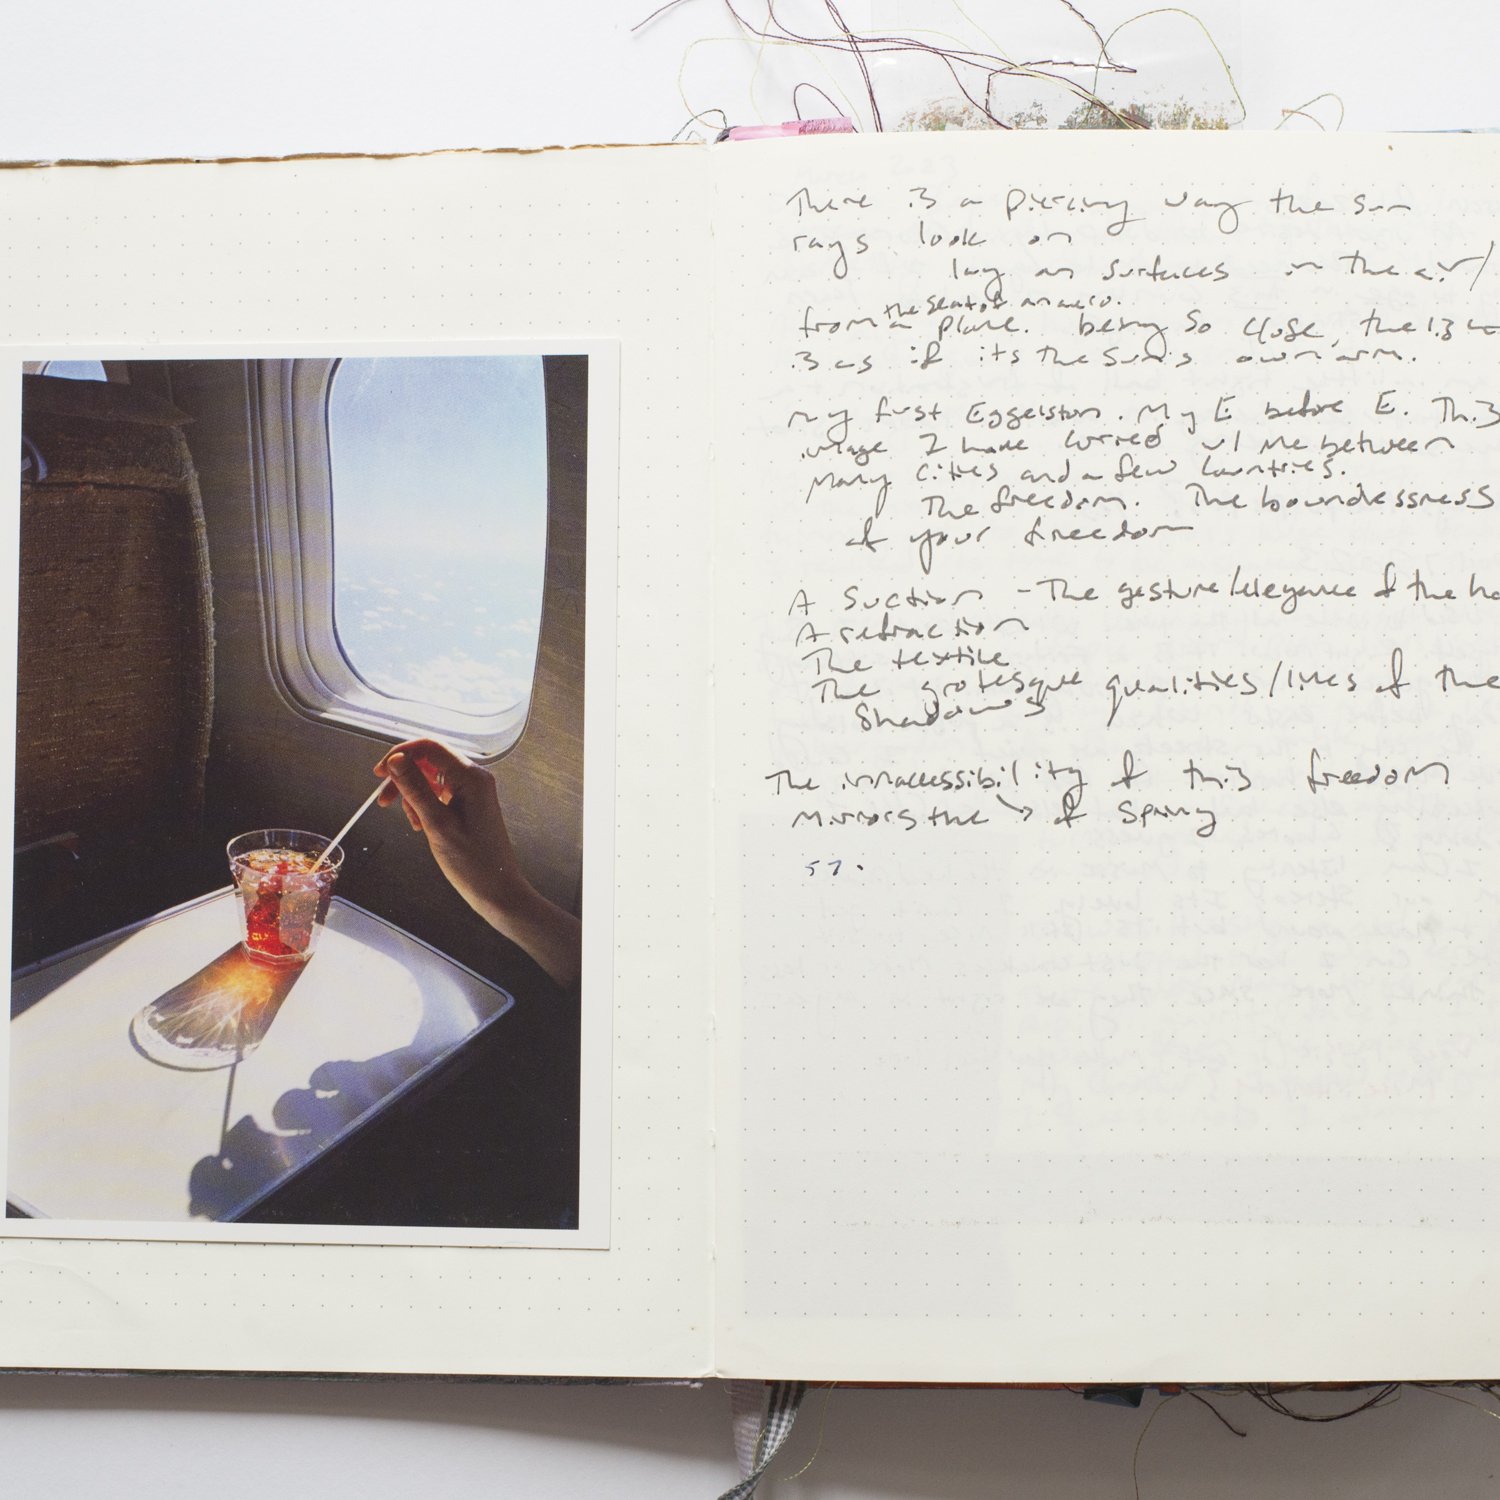 There is a piercing way the sun
rays look on
lay on surfaces in the air/
the seat of an aero.
from a plane. being so close, the
is as if its the sun's own arm.
my first Eggelston. My E before E. This
image I have carried w/ me between
Many cities and a few countries.
The freedom. The boundlessness
of your freedom
A suction - The gesture/elegance of the
A refraction
The textile
The grotesque qualities/lines of the
Shadows
The innaccessibility of this freedom
mirrors the ↘ of Spring
57.